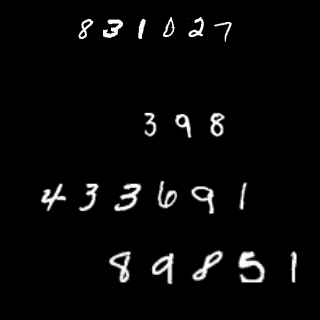 831027
398
433691
89851